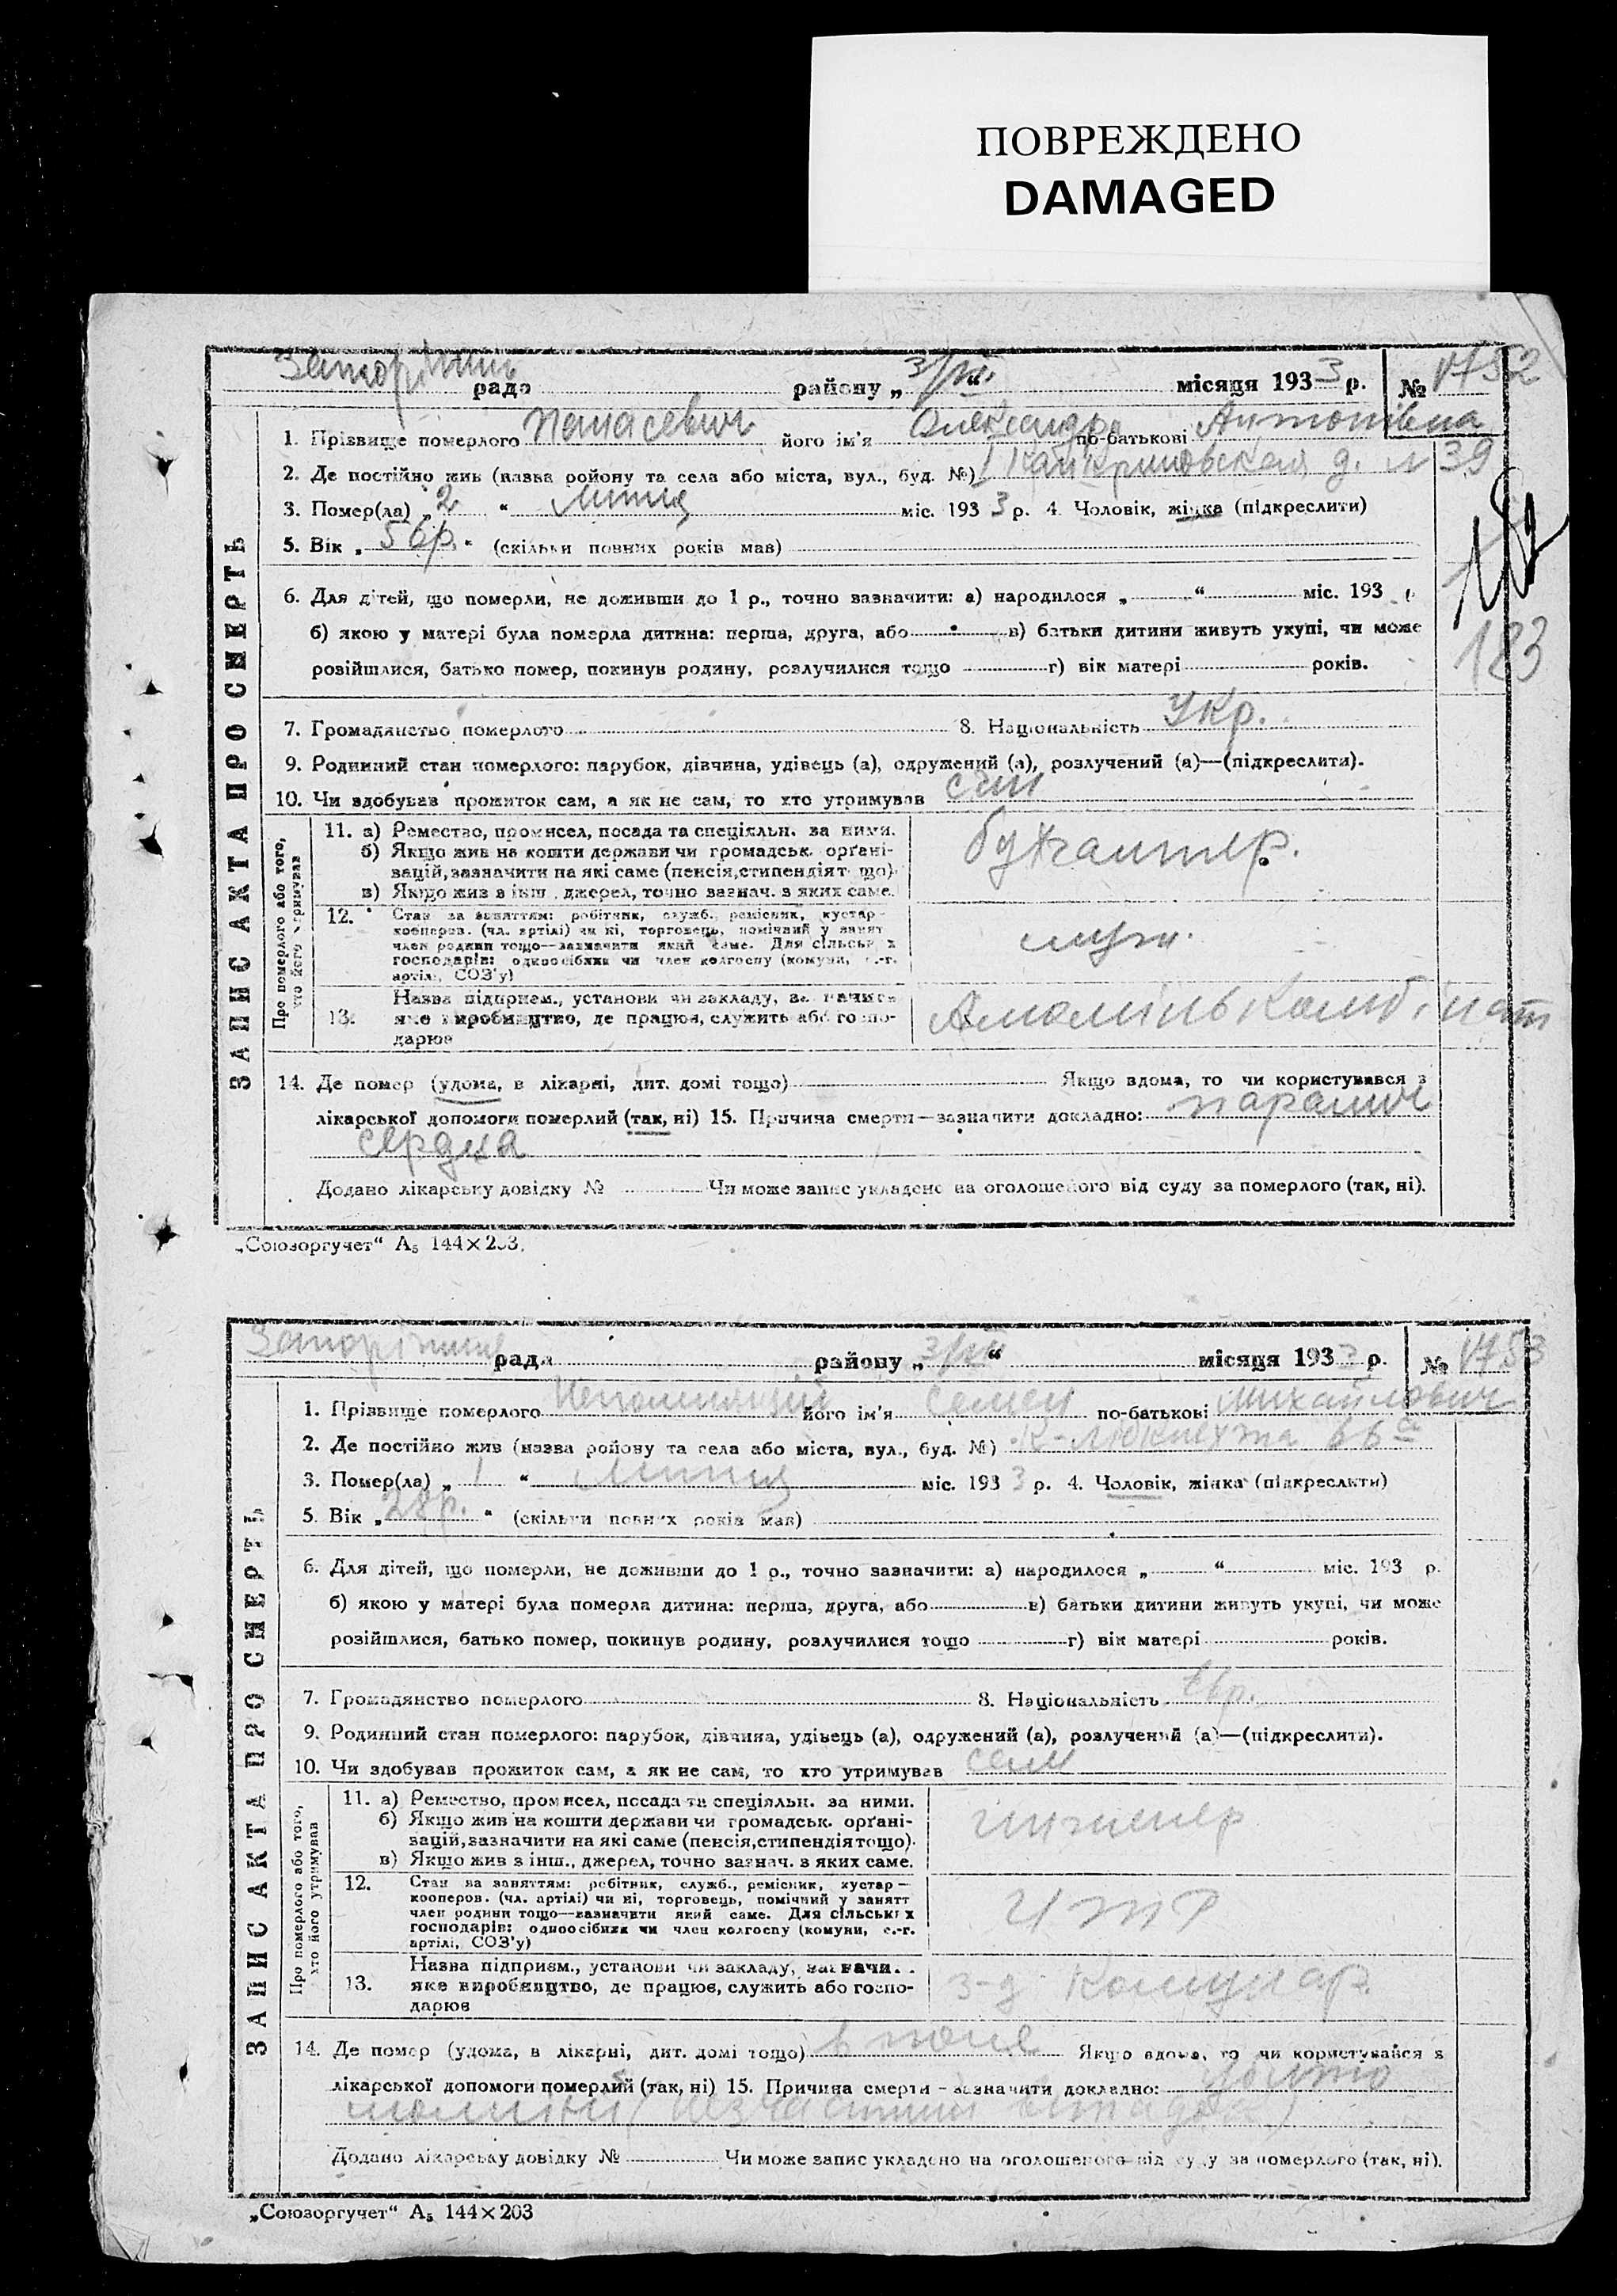 ПОВРЕЖДЕНО
DAMAGED
рада району „3/VII“ місяця 1933 р. № 1752
1. Прізвище померлого Панасевич його ім'я Олександра по-батькові Антонівна
2. Де постійно жив (назва району та села або міста, вул., буд. №) д. № 39
3. Помер(ла) „2“ липня міс. 1933 р. 4. Чоловік, жінка (підкреслити)
5. Вік „56р.“ (скільки повних років мав)
6. Для дітей, що померли, не доживши до 1 р., точно зазначити: а) народилося „ “ міс. 193 р
б) якою у матері була померла дитина: перша, друга, або в) батьки дитини живуть укупі, чи може
розійшлися, батько помер, покинув родину, розлучилися тощо г) вік матері років.
183
7. Громадянство померлого 8. Національність Укр.
9. Родинний стан померлого: парубок, дівчина, удівець (а), одружений (а), розлучений (а)—(підкреслити).
10. Чи здобував прожиток сам, а як не сам, то хто утримував сам
ЗАПИС АКТА ПРО СМЕРТЬ
Про померлого або того, хто його утримував
11. а) Ремество, промисел, посада та спеціяльн. за ними.
б) Якщо жив на кошти держави чи громадськ. орґані-
зацій, зазначити на які саме (пенсія, стипендія т що)
в) Якщо жив з інш., джерел, точно зазнач. з яких саме.
бухгалтер.
12. Стан за заняттям: робітник, служб., ремісник, кустар—
кооперов. (чл. артілі) чи ні, торговець, помічний у занят
член родини тощо—зазначити який саме. Для сільськ х
господарів: одноосібник чи член колгоспу (комуни, с.-г.
артілі, СОЗ'у)
служ.
13. Назва підприєм., установи чи закладу, зазначи
яке виробництво, де працює, служить або госпо-
дарює
14. Де помер (удома, в лікарні, дит. домі тощо) Якщо вдома, то чи користувався з
лікарської допомоги померлий (так, ні) 15. Причина смерти—зазначити докладно: параліч
сердца
Додано лікарську довідку № Чи може запис укладено на оголошеного від суду за померлого (так, ні).
„Союзоргучет“ А₅ 144×203.
Запоріжжя рада району „3/VII“ місяця 1933 р. № 1753
1. Прізвище померлого Непомнящий його ім'я Семен по-батькові Михайлович
2. Де постійно жив (назва району та села або міста, вул., буд. №) К-Лібкнехта 66а
3. Помер(ла) „1“ липня міс. 1933 р. 4. Чоловік, жінка (підкреслити)
5. Вік „28р.“ (скільки повних років мав)
6. Для дітей, що померли, не доживши до 1 р., точно зазначити: а) народилося „ “ міс. 193 р.
б) якою у матері була померла дитина: перша, друга, або в) батьки дитини живуть укупі, чи може
розійшлися, батько помер, покинув родину, розлучилися тощо г) вік матері років.
7. Громадянство померлого 8. Національність Євр.
9. Родинний стан померлого: парубок, дівчина, удівець (а), одружений (а), розлучений (а)—(підкреслити).
10. Чи здобував прожиток сам, а як не сам, то хто утримував сам
ЗАПИС АКТА ПРО СМЕРТЬ
Про померлого або того, хто його утримував
11. а) Ремество, промисел, посада та спеціяльн. за ними.
б) Якщо жив на кошти держави чи громадськ. орґані-
зацій, зазначити на які саме (пенсія, стипендія тощо).
в) Якщо жив з інш., джерел, точно зазнач. з яких саме.
инженер
12. Стан за заняттям: робітник, служб., ремісник, кустар—
кооперов. (чл. артілі) чи ні, торговець, помічний у занятт
член родини тощо—зазначити який саме. Для сільськ х
господарів: одноосібник чи член колгоспу (комуни, с.-г.
артілі, СОЗ'у)
ИТР
13. Назва підприєм., установи чи закладу, зазначи..
яке виробництво, де працює, служить або госпо-
дарює
з-д Комунар.
14. Де помер (удома, в лікарні, дит. домі тощо) в поле Якщо вдома, то чи користувався з
лікарської допомоги померлий (так, ні) 15. Причина смерти—зазначити докладно:
Додано лікарську довідку № Чи може запис укладено на оголошеного від суду за померлого (так, ні).
„Союзоргучет“ А₅ 144×203